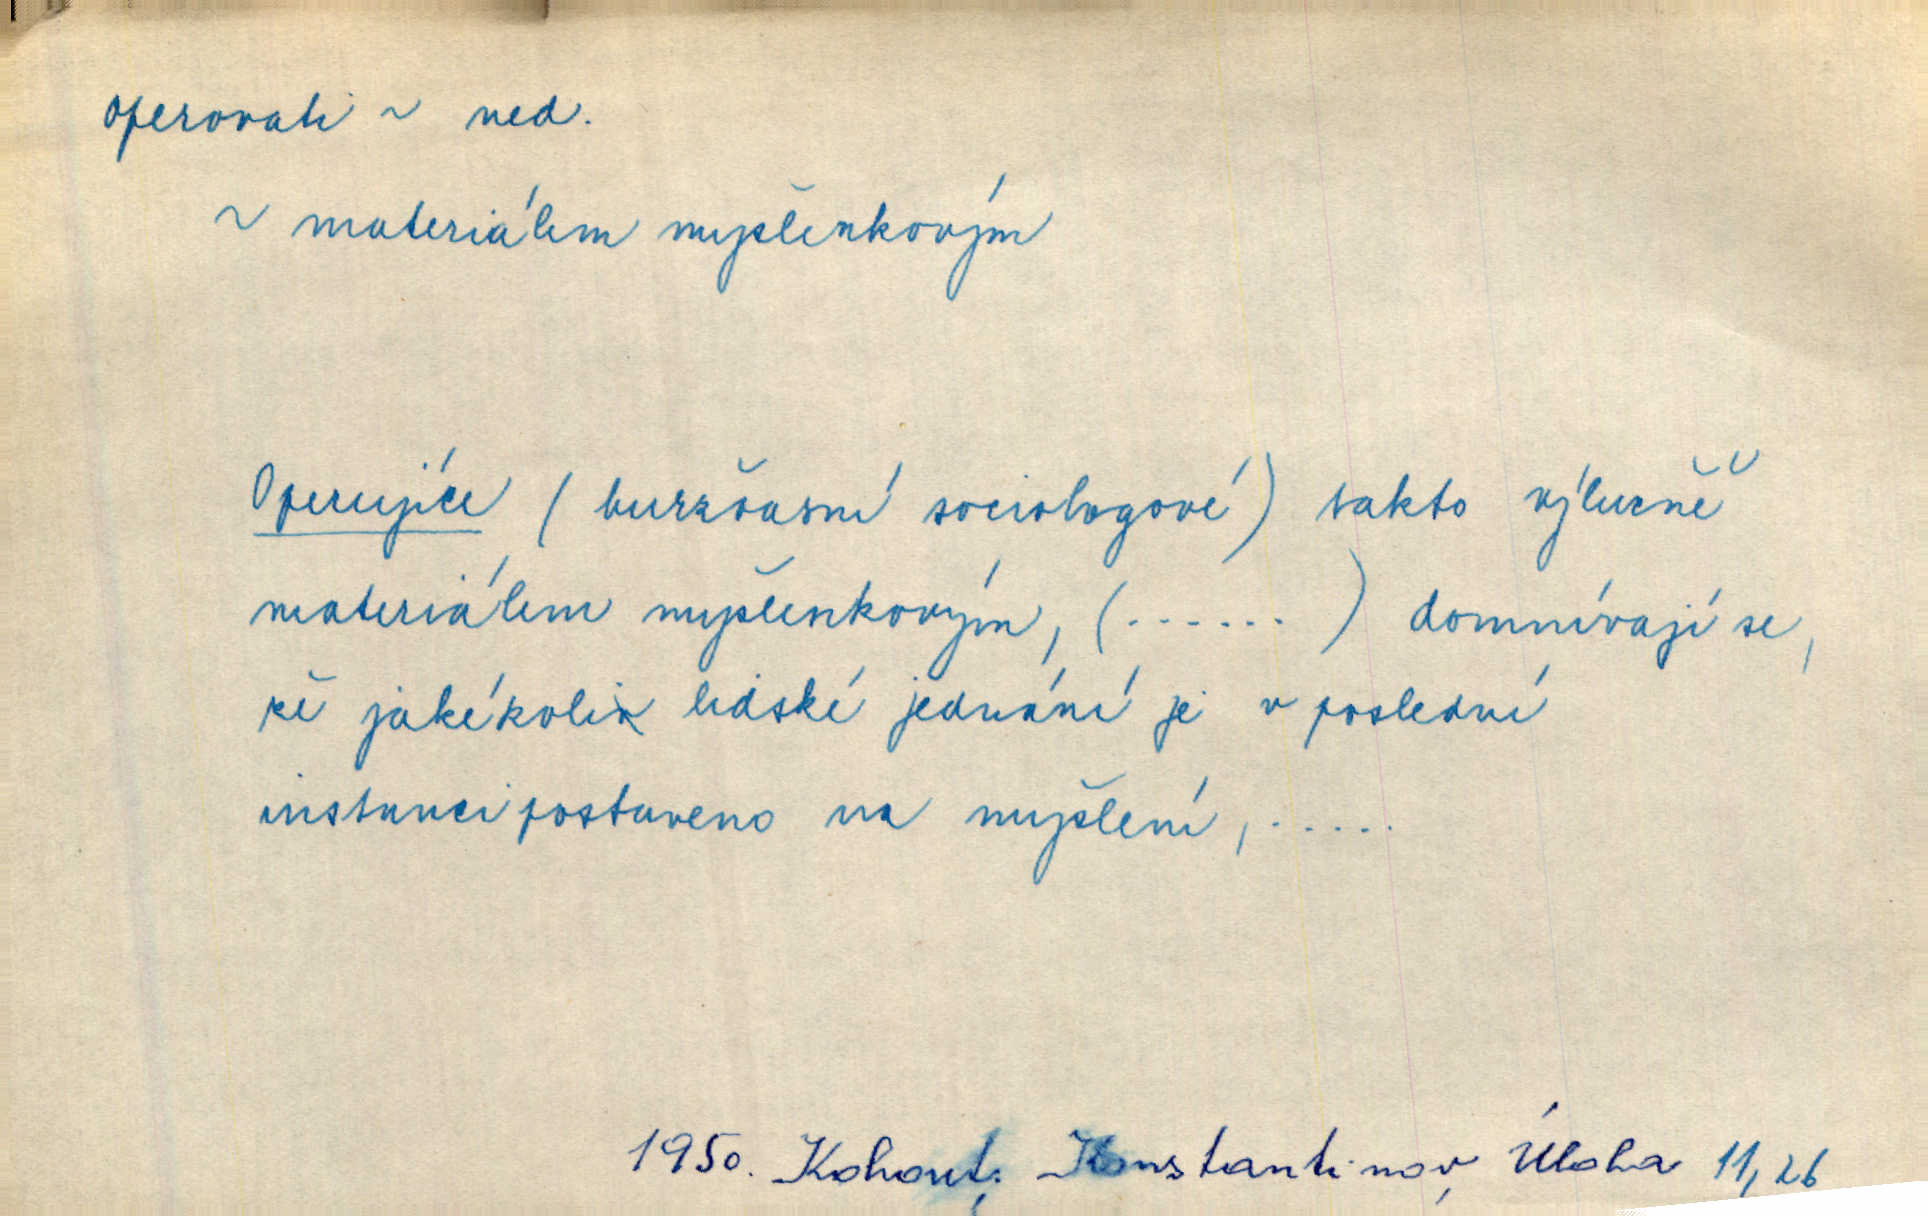 operovati ~ ned.
~ materiálem myšlenkovým
Operujíce (buržoasní sociologové) takto výlučně
materiálem myšlenkovým, (......) domnívají se,
že jakékoliv lidské jednání je v poslední
instanci postaveno na myšlení, .....
1950. Kohout, Konstantinov, Úloha 11, 26